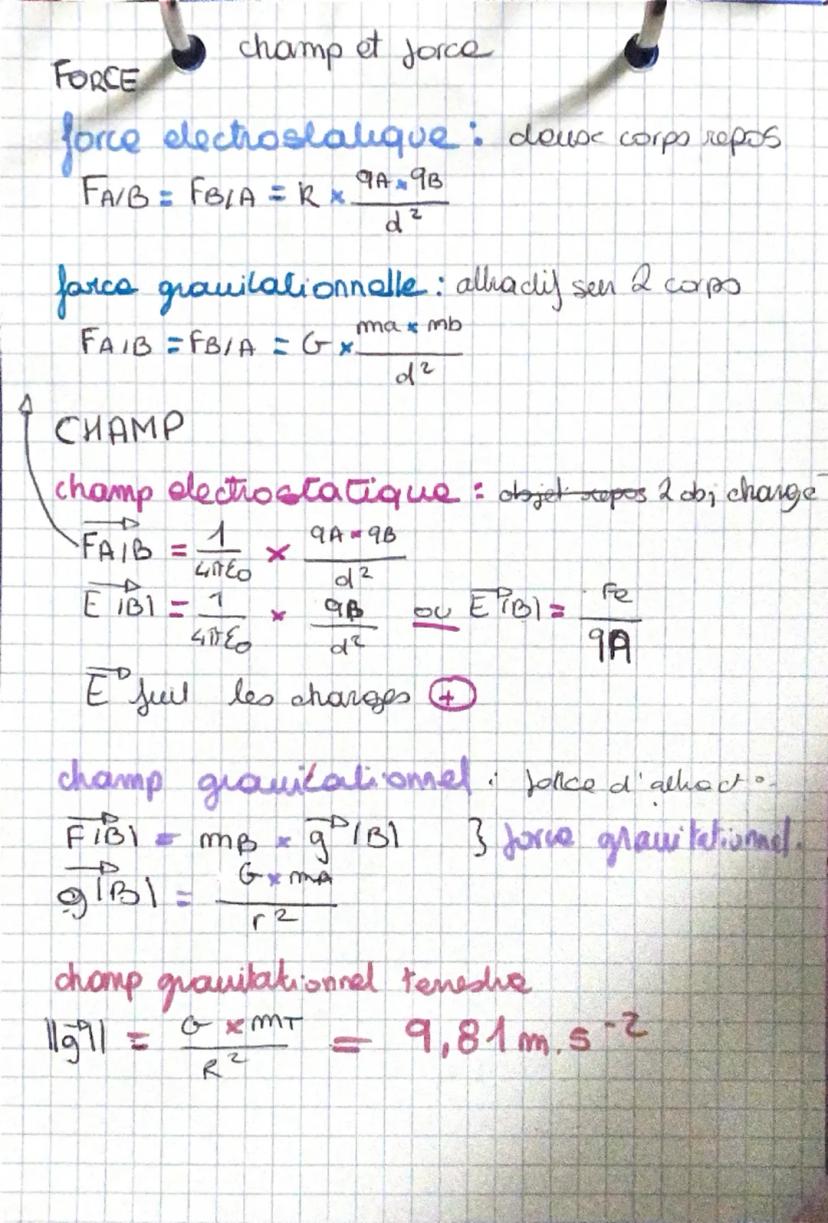 champ et force
FORCE
force electrostatique : deux corps repos
FA/B = FB/A = k × qA × qB / d²
force gravitationnelle : attractif sur 2 corps
FA/B = FB/A = G × ma × mb / d²
CHAMP
champ electrostatique : objet repos 2 obj chargé
FA/B = 1 / 4πε0 × qA × qB / d²
E(B) = 1 / 4πε0 × qB / d² ou E(B) = Fe / qA
E fuit les charges +
champ gravitationnel : force d'attract°
F(B) = mB × g(B) } force gravitationnel.
g(B) = G × mA / r²
champ gravitationnel terrestre
||g|| = G × mT / R² = 9,81 m.s⁻²